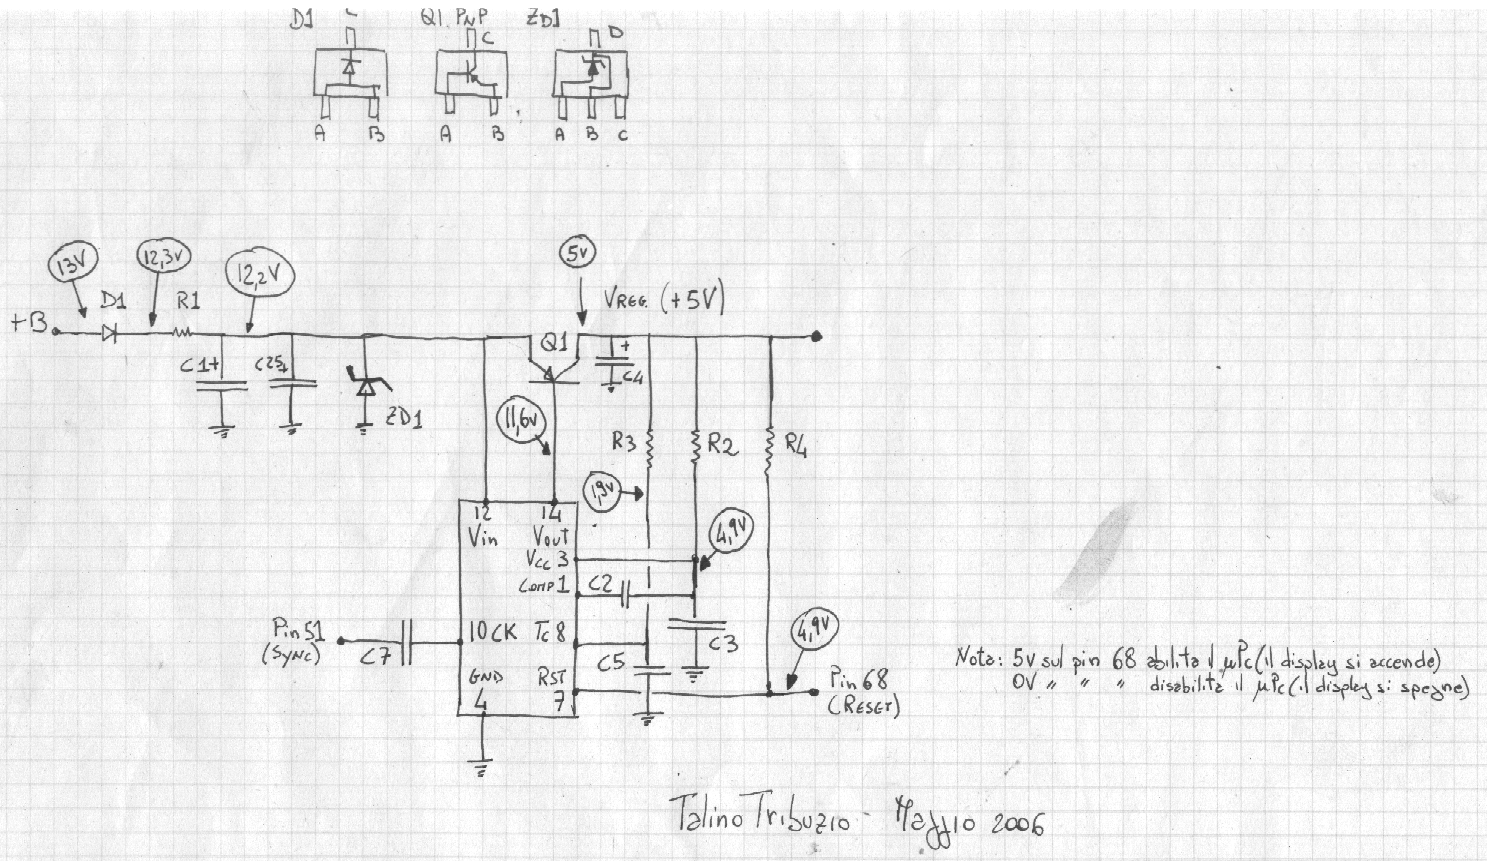 D1
Q1 PNP
ZD1
C
D
A B
A B
A B C
13V
12,3V
12,2V
5V
D1
R1
VREG. (+5V)
+B
Q1
C1+
C25+
+
C4
ZD1
11,6V
R3
R2
R4
1,9V
12
14
4,9V
Vin
Vout
Vcc 3
COMP 1
C2
Pin 51
(SYNC)
C7
10 CK
Tc 8
C3
4,9V
C5
GND
4
RST
7
Pin 68
(RESET)
Nota: 5V sul pin 68 abilita il µPc (il display si accende)
0V " " " disabilita il µPc (il display si spegne)
Talino Tribuzio - Maggio 2006